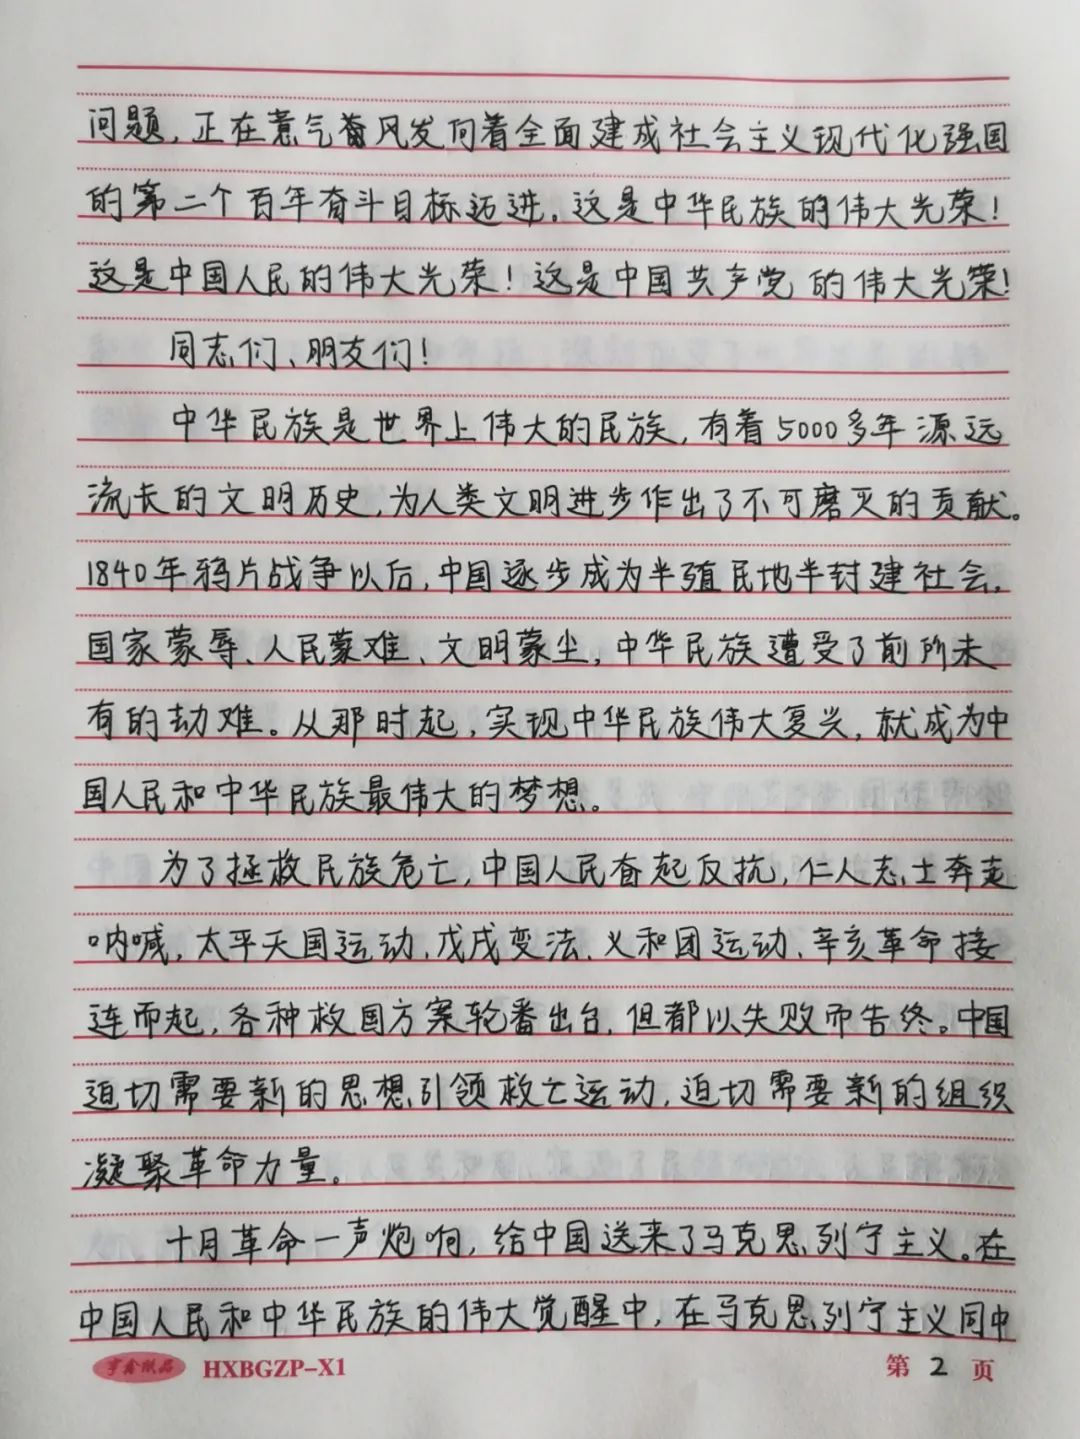 问题,正在意气奋风发向着全面建成社会主义现代化强国
的第二个百年奋斗目标迈进。这是中华民族的伟大光荣!
这是中国人民的伟大光荣!这是中国共产党的伟大光荣!
同志们、朋友们!
中华民族是世界上伟大的民族,有着5000多年源远
流长的文明历史,为人类文明进步作出了不可磨灭的贡献。
1840年鸦片战争以后,中国逐步成为半殖民地半封建社会,
国家蒙辱、人民蒙难、文明蒙尘,中华民族遭受了前所未
有的劫难。从那时起,实现中华民族伟大复兴,就成为中
国人民和中华民族最伟大的梦想。
为了拯救民族危亡,中国人民奋起反抗,仁人志士奔走
呐喊,太平天国运动、戊戌变法、义和团运动、辛亥革命接
连而起,各种救国方案轮番出台,但都以失败而告终。中国
迫切需要新的思想引领救亡运动,迫切需要新的组织
凝聚革命力量。
十月革命一声炮响,给中国送来了马克思列宁主义。在
中国人民和中华民族的伟大觉醒中,在马克思列宁主义同中
亨鑫纸品 HXBGZP-X1 第2页